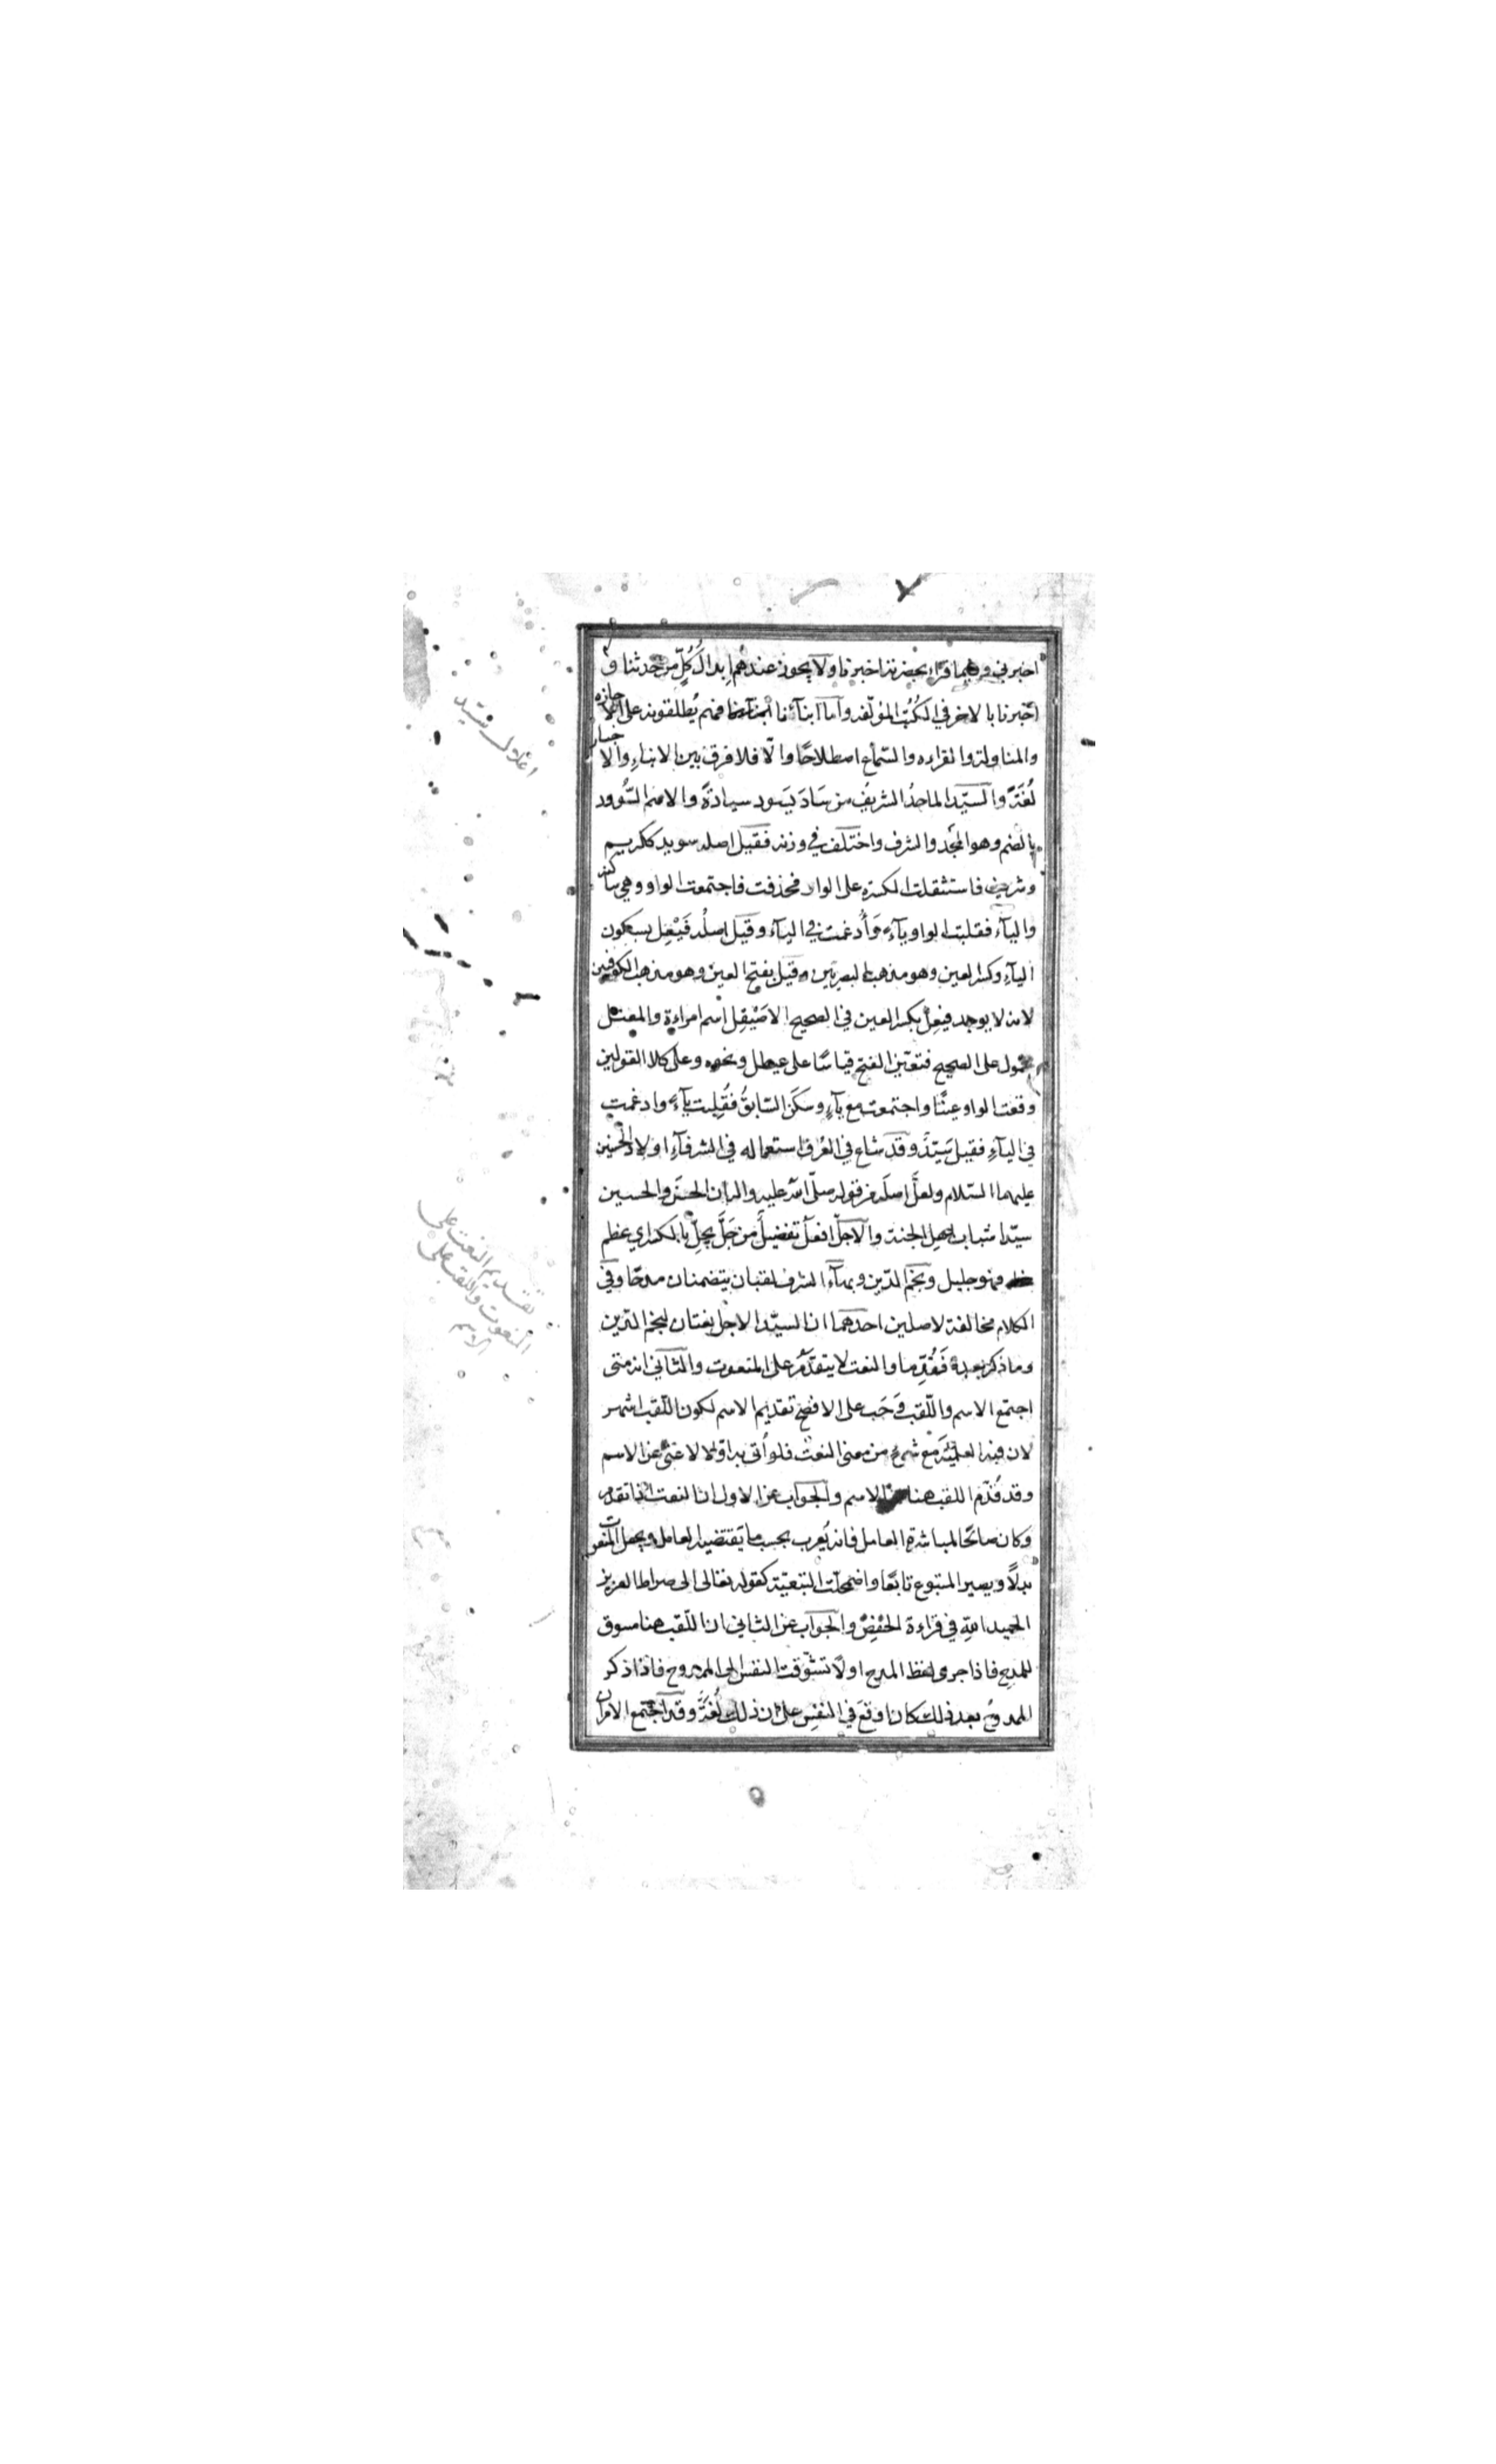 اخبرني وفيما قراء بحضرته اخبرنا ولا يجوز عندهم ابدال كُلّ من حدثنا و
اخبرنا بالاخر في الكُتُب المؤلّفه وامّا انبأنا فهم يُطلقونه على الاجازه
والمناولة والقراءه والسّماع اصطلاحًا والّا فلا فرق بين الانباءِ والاخبار
لُغَةً والسيّد الماجدُ الشريفُ من سَادَ يَسَود سيادَةً والاسم السُّوود
بالضم وهو المجْد والشرف واختلف في وزنه فقيل اصله سويد ككريم
وشريف فاستثقلت الكسرة على الواو فحذفت فاجتمعت الواو وهي ساكنه
والياء فقلبت الواو ياءً وَأُدغمت في الياء وقيل اصلُه فَيْعِل بسكون
الياءِ وكسر العين وهو مذهب البصريّين وقيل بفتح العين وهو مذهب الكوفيين
لانه لا يوجد فيعِل بكسر العين في الصحيح الا صَيْقِل اسم امراءة والمعتل
محمول على الصحيح فتعيّن الفتح قياسًا على عيطل ونحوه وعلى كلا القولين
وقعت الواو عينًا واجتمعت مع ياءٍ وسكَن السّابقُ فقُلِبت ياءً وادغمت
في الياءِ فقيل سَيّدٌ وقد شاع في العُرف استعماله في الشرفاءِ اولاد الحسنين
عليهما السّلام ولعلَّ اصلَه من قوله صلّى الله عليه واله ان الحسَن والحسين
سيّدا شباب اهل الجنة والاجلّ افعل تفضيل من جَلَّ يجلّ بالكسر اي عظم
فهو جليل ونجم الدّين وبهاءُ الشرف لقبان يتضمنان مدحًا وفي
الكلام مخالفة لاصلين احدهما ان السيّد الاجل نعتان لنجم الدّين
وما ذكر بعده فَقُدِّما والنعت لا يتقدّمُ على المنعوت والثاني انه متى
اجتمع الاسم واللّقب وَجَب على الافصح تقديم الاسم لكون اللّقب اشهر
لان فيه العلميّةَ مع شيءٍ من معنى النعت فلو أُتى به اوّلا لاغنى عن الاسم
وقد قُدّم اللقب هنا على الاسم والجوَاب عن الاول ان النعت اذا تقدم
وكان صالحًا لمباشرةِ العامل فانه يُعرب بحسب ما يَقتضيه العامل ويجعل المنعوت
بدلًا ويصير المتبوع تابعًا واضمحلت التبعيّة كقوله تعالى الى صراط العزيز
الحميد اللهِ في قراءة الخفض والجوَاب عن الثاني ان اللّقب هنا مسوق
للمدح فاذا جرى لفظ المدح اولًا تشوّقت النفس الى الممدوح فاذا ذكر
الممدوحُ بعد ذلك كان اوقعَ في النفسِ على ان ذلك لُغَةٌ وقد اجتمع الامران
اعلال سَيّد
تقديم النعت على
المنعوت واللقب على
الاسم